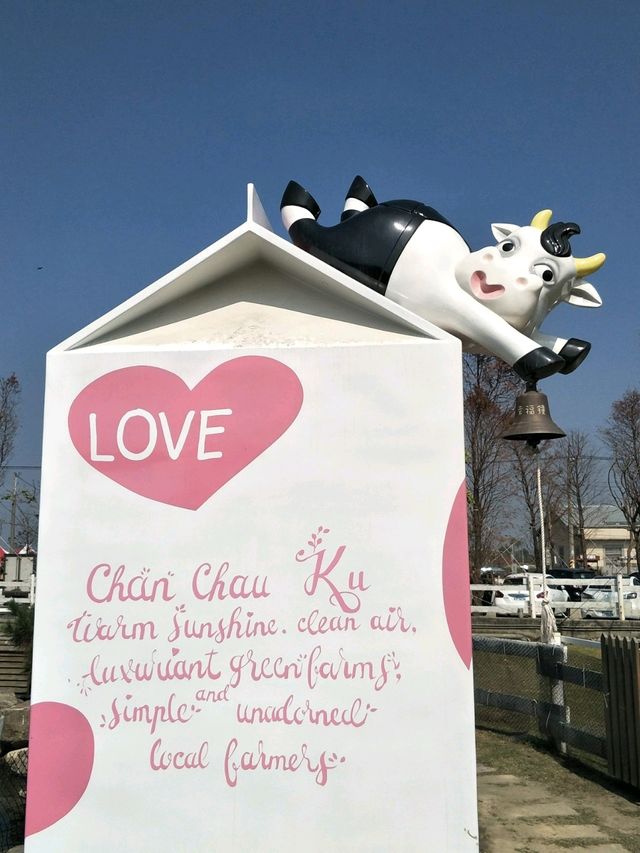 LOVE
Chan Chau Ku
Warm Sunshine. clean air.
luxuriant green farms,
simple and unadorned
local farmers
幸福鐘